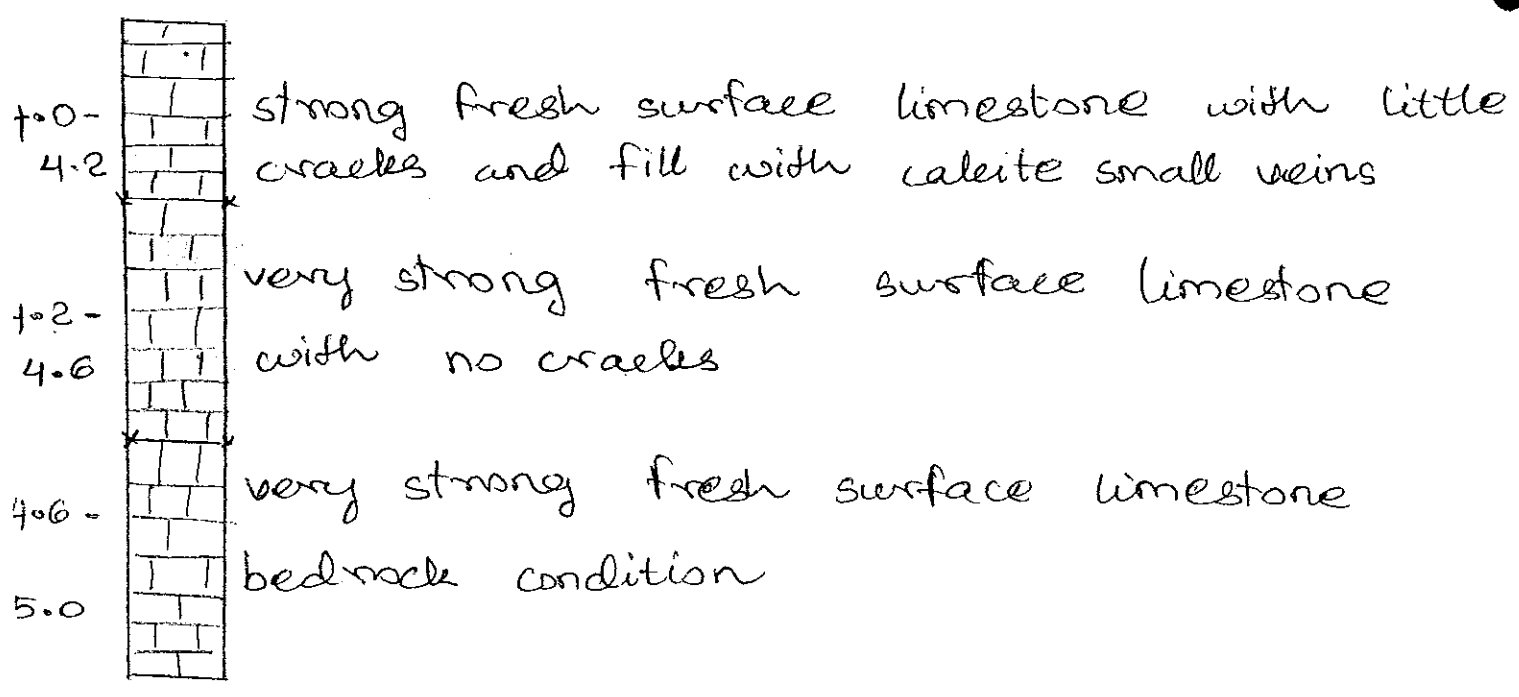 4.0 -
strong fresh surface limestone with little
4.2 cracks and fill with calcite small veins
very strong fresh surface limestone
4.2 -
4.6 with no cracks
4.6 - very strong fresh surface limestone
bedrock condition
5.0